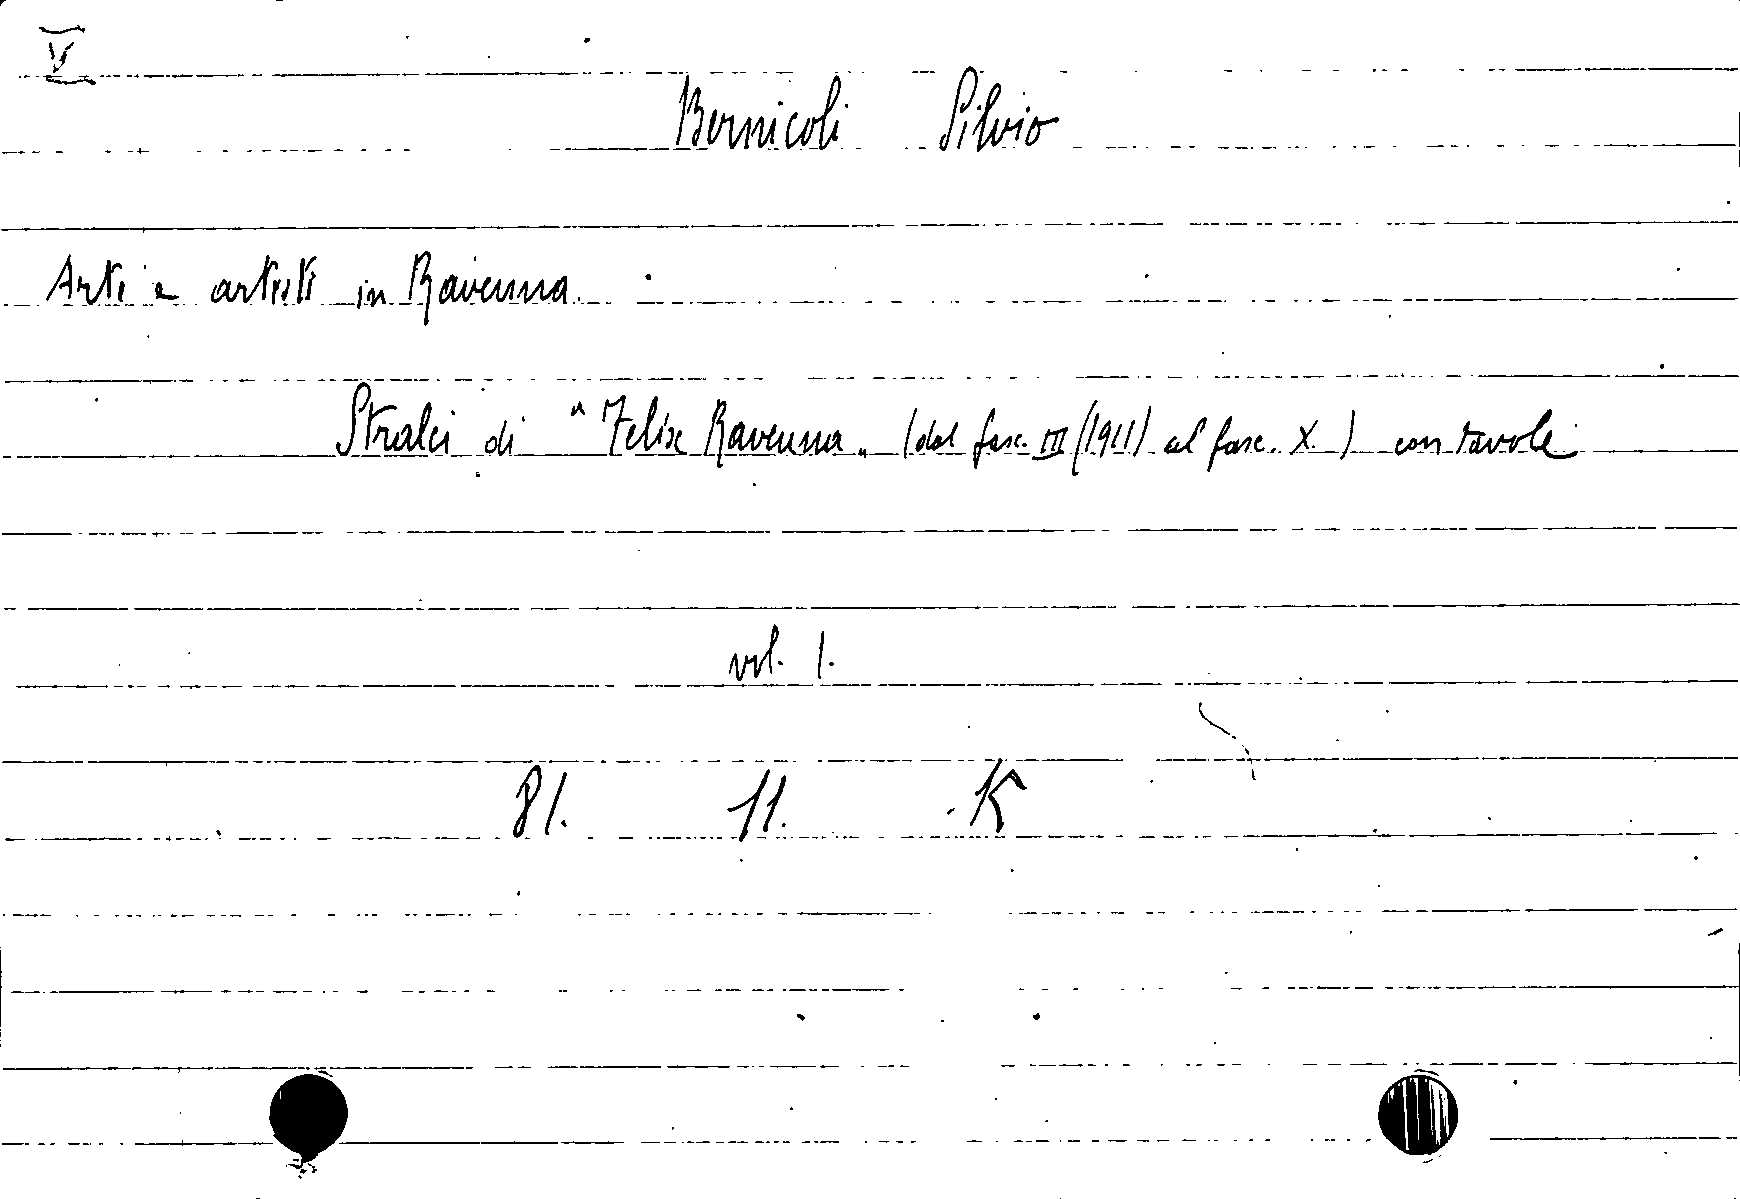 V
Bernicoli Silvio
Arti e artisti in Ravenna.
Stralci di "Felix Ravenna" (dal fasc. III (1911) al fasc. X.) con tavole
vol. 1.
81. 11. K